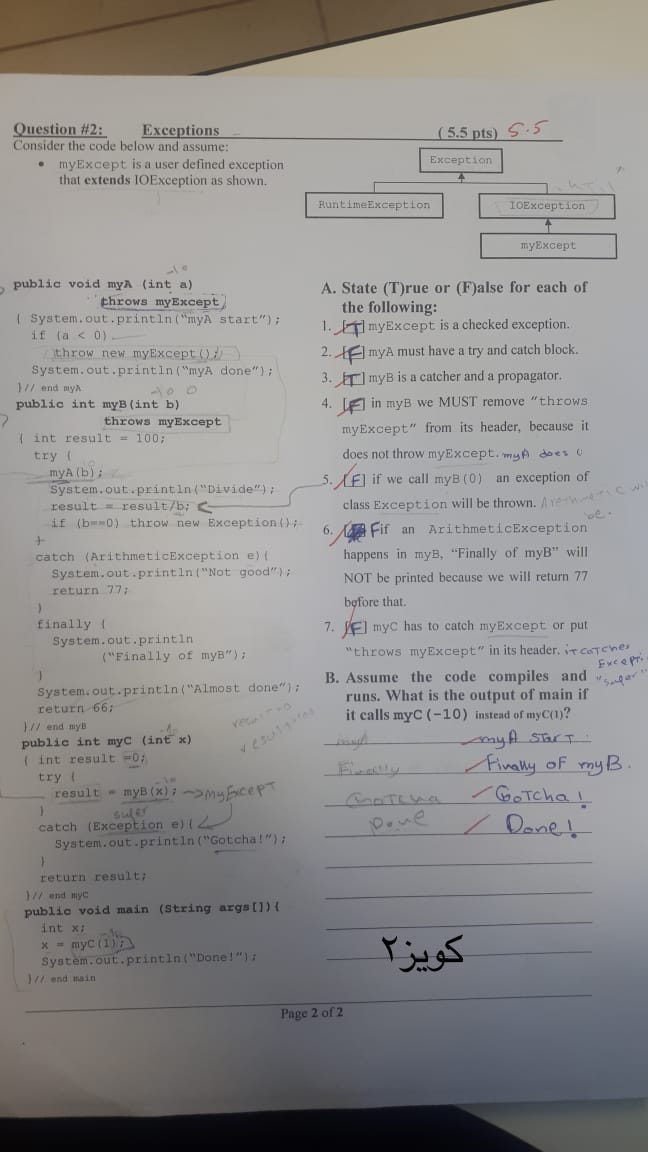 Question #2: Exceptions ( 5.5 pts) 5.5
Consider the code below and assume:
• myExcept is a user defined exception
that extends IOException as shown.
Exception
RuntimeException
IOException
myExcept
-10
public void myA (int a)
throws myExcept
{ System.out.println("myA start");
if (a < 0)
throw new myExcept();
System.out.println("myA done");
}// end myA
-10 0
public int myB(int b)
throws myExcept
{ int result = 100;
try {
myA(b);
System.out.println("Divide");
result = result/b;
if (b==0) throw new Exception();
}
catch (ArithmeticException e){
System.out.println("Not good");
return 77;
}
finally {
System.out.println
("Finally of myB");
}
System.out.println("Almost done");
return 66;
}// end myB
public int myC (int x)
{ int result =0;
try {
result = myB(x); →myExcept
}
super
catch (Exception e){
System.out.println("Gotcha!");
}
return result;
}// end myC
public void main (String args[]){
int x;
x = myC(1);
System.out.println("Done!");
}// end main
A. State (T)rue or (F)alse for each of
the following:
1. [T] myExcept is a checked exception.
2. [F] myA must have a try and catch block.
3. [T] myB is a catcher and a propagator.
4. [F] in myB we MUST remove "throws
myExcept" from its header, because it
does not throw myExcept. myA does
5. [F] if we call myB(0) an exception of
class Exception will be thrown. Arethmetic
be.
6. F if an ArithmeticException
happens in myB, "Finally of myB" will
NOT be printed because we will return 77
before that.
7. [F] myC has to catch myExcept or put
"throws myExcept" in its header. it catches
Excepti
"super"
B. Assume the code compiles and
runs. What is the output of main if
it calls myC(-10) instead of myC(1)?
myA myA start
Finally Finally of myB.
Gotcha GoTcha!
Done Done!
كويز٢
Page 2 of 2